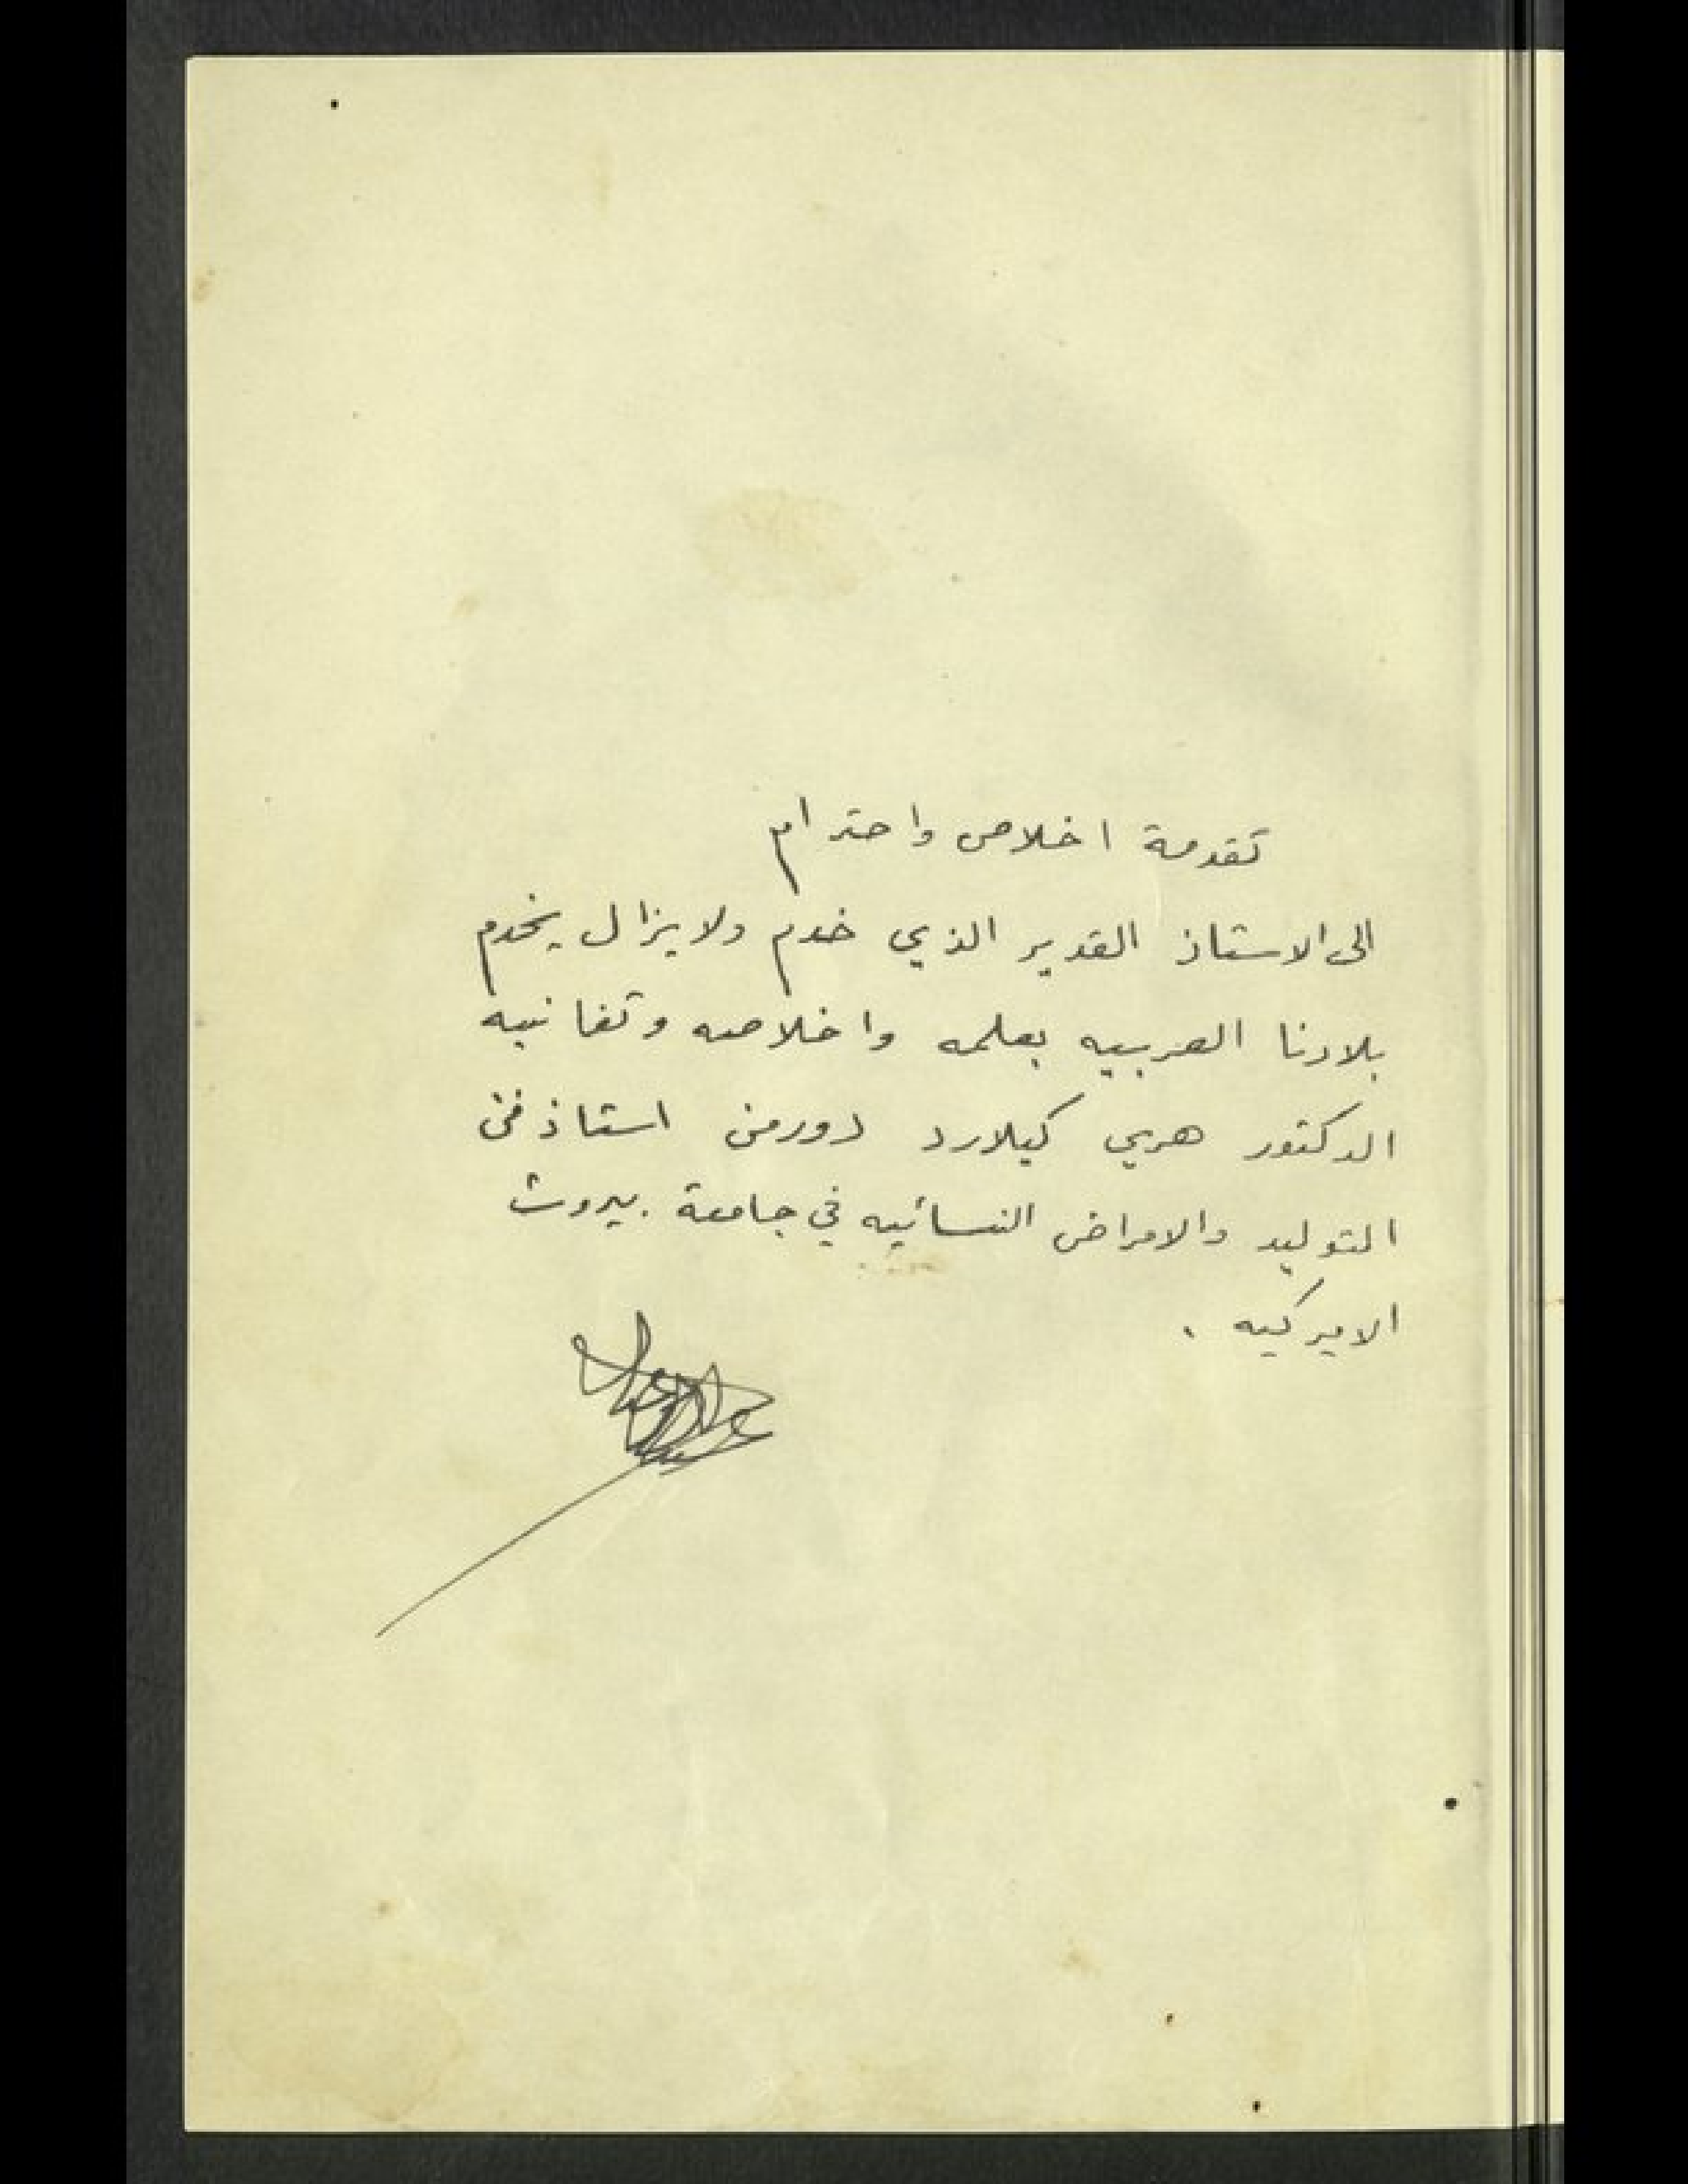 تقدمة اخلاص واحترام
الى الاستاذ القدير الذي خدم ولا يزال يخدم
بلادنا العربيه بعلمه واخلاصه وتفانيه
الدكتور هري كيلارد دورمن استاذ فن
التوليد والامراض النسائيه في جامعة بيروت
الاميركيه .